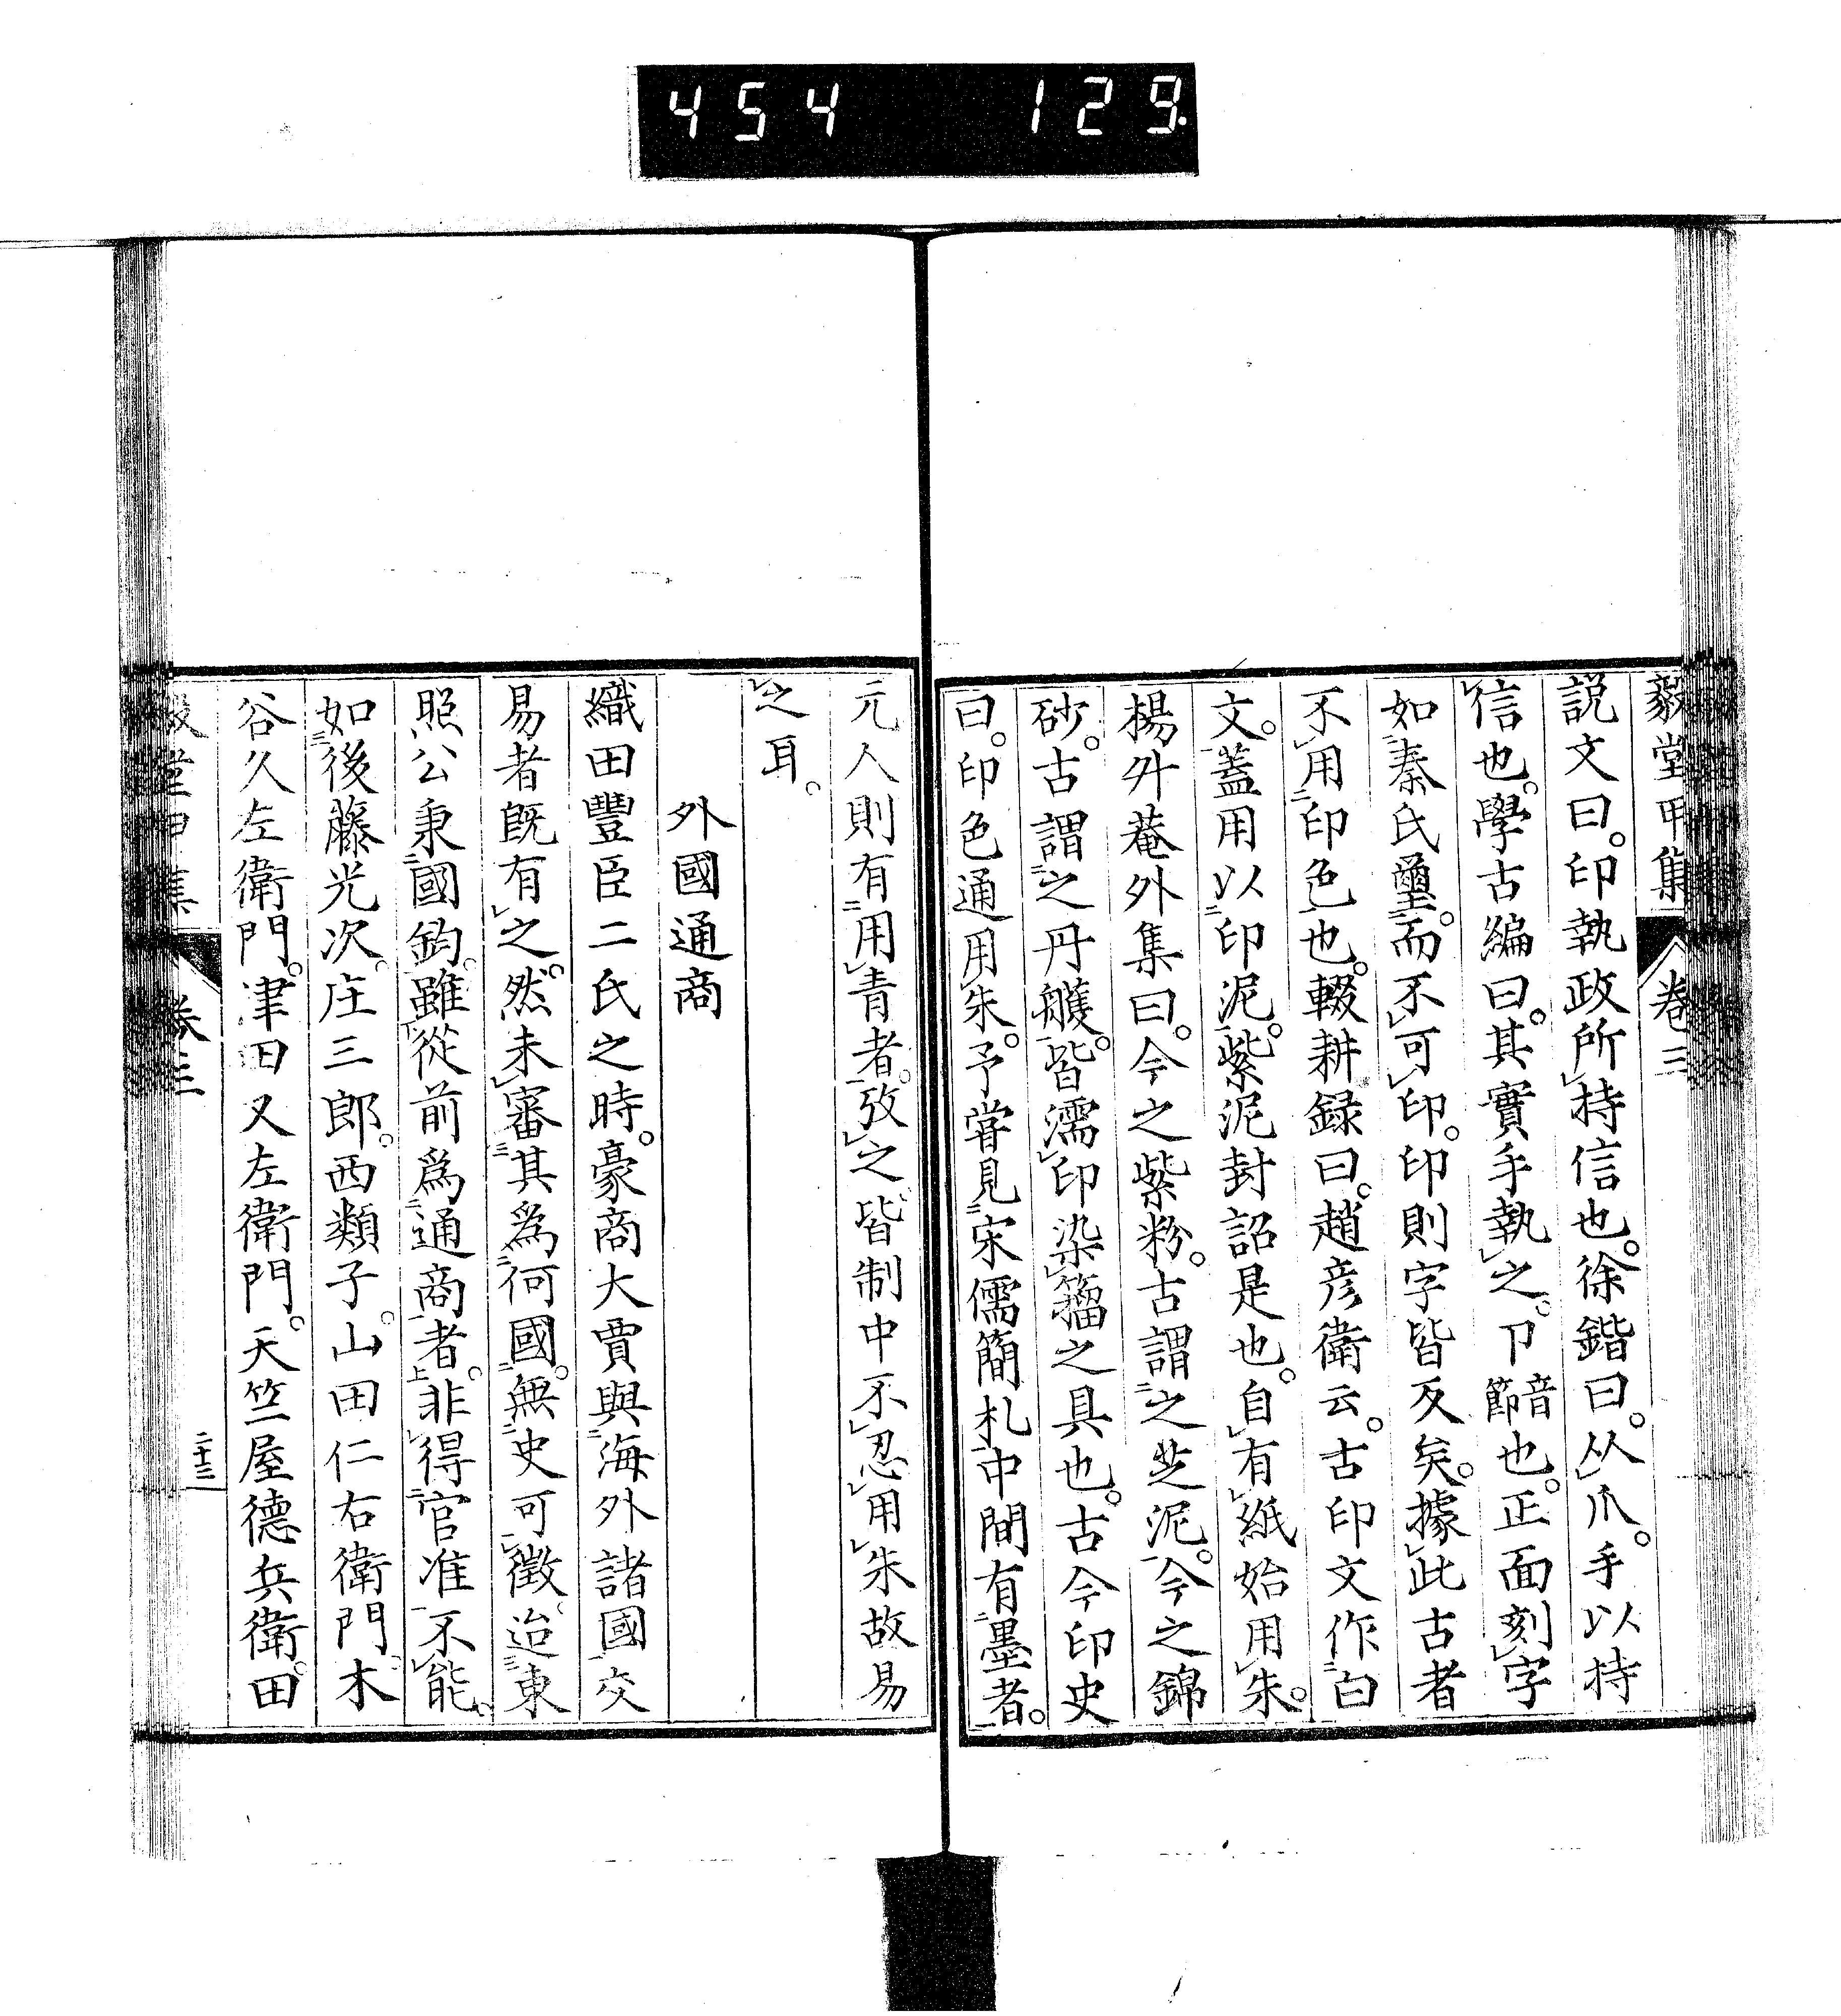 454 129
毅堂甲集 卷三
説文曰。印執政所持信也。徐鍇曰。从爪。手以持
信也。學古編曰。其實手執之。卩音節也。正面刻字
如秦氏璽。而不可印。印則字皆反矣。據此古者
不用印色也。輟耕録曰。趙彦衛云。古印文作白
文。蓋用以印泥。紫泥封詔是也。自有紙始用朱。
楊升菴外集曰。今之紫粉。古謂之芝泥。今之錦
砂。古謂之丹雘。皆濡印染籀之具也。古今印史
曰。印色通用朱。予嘗見宋儒簡札中間有墨者。
元人則有用青者。攷之皆制中不忍用朱故易
之耳。
外國通商
織田豐臣二氏之時。豪商大賈與海外諸國交
易者既有之。然未審其爲何國。無史可徵。迨東
照公秉國鈞。雖從前爲通商者。非得官准不能。
如後藤光次。庄三郎。西類子。山田仁右衛門。木
谷久左衛門。津田又左衛門。天竺屋德兵衛。田
毅堂甲集 卷三 二十三